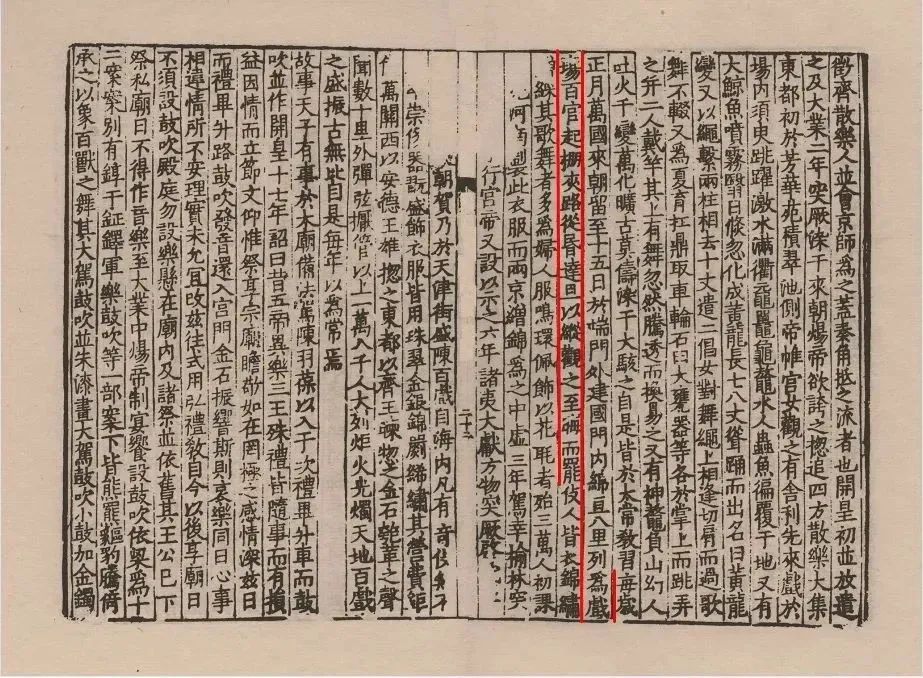 徵齊散樂人並會京師為之蓋秦角抵之流者也開皇初並放遣
之及大業二年突厥染干來朝煬帝欲誇之揔追四方散樂大集
東都初於芳華苑積翠池側帝帷宮女觀之有舍利先來戲於
場內須臾跳躍激水滿衢黿鼉龜鼇水人蟲魚徧覆于地又有
大鯨魚噴霧翳日倐忽化成黃龍長七八丈聳踊而出名曰黃龍
變又以繩繫兩柱相去十丈遣二倡女對舞繩上相逢切肩而過歌
舞不輟又為夏育扛鼎取車輪石臼大甕器等各於掌上而跳弄
之并二人戴竿其上有舞忽然騰透而換易之又有神鼇負山幻人
吐火千變萬化曠古莫儔染干大駭之自是皆於太常教習每歲
正月萬國來朝留至十五日於端門外建國門內綿亘八里列為戲
場百官起棚夾路從昏達旦以縱觀之至晦而罷伎人皆衣錦繡
綵其歌舞者多為婦人服鳴環佩飾以花毦者殆三萬人初課
河南製此衣服而兩京繒錦為之中虛三年駕幸榆林突
行宮帝又設以示之六年諸夷大獻方物突厥啟
二十三
朝賀乃於天津街盛陳百戲自海內凡有奇伎無不
崇侈器玩盛飾衣服皆用珠翠金銀錦罽絺繡其營費鉅
萬關西以安德王雄揔之東都以齊王暕揔之金石匏革之聲
聞數十里外彈弦擫管以上一萬八千人大列炬火光燭天地百戲
之盛振古無比自是每年以為常焉
故事天子有事於太廟備法駕陳羽葆以入于次禮畢升車而鼓
吹並作開皇十七年詔曰昔五帝異樂三王殊禮皆隨事而有損
益因情而立節文仰惟祭享宗廟瞻敬如在罔極之感情深茲日
而禮畢升路鼓吹發音還入宮門金石振響斯則哀樂同日心事
相違情所不安理實未允宜改茲往式用弘禮教自今以後享廟日
不須設鼓吹殿庭勿設樂懸在廟內及諸祭並依舊其王公已下
祭私廟日不得作音樂至大業中煬帝制宴饗設鼓吹依梁為十
二案案別有錞于鉦鐸軍樂鼓吹等一部案下皆熊羆貙豹騰倚
承之以象百獸之舞其大駕鼓吹並朱漆畫大駕鼓吹小鼓加金鐲